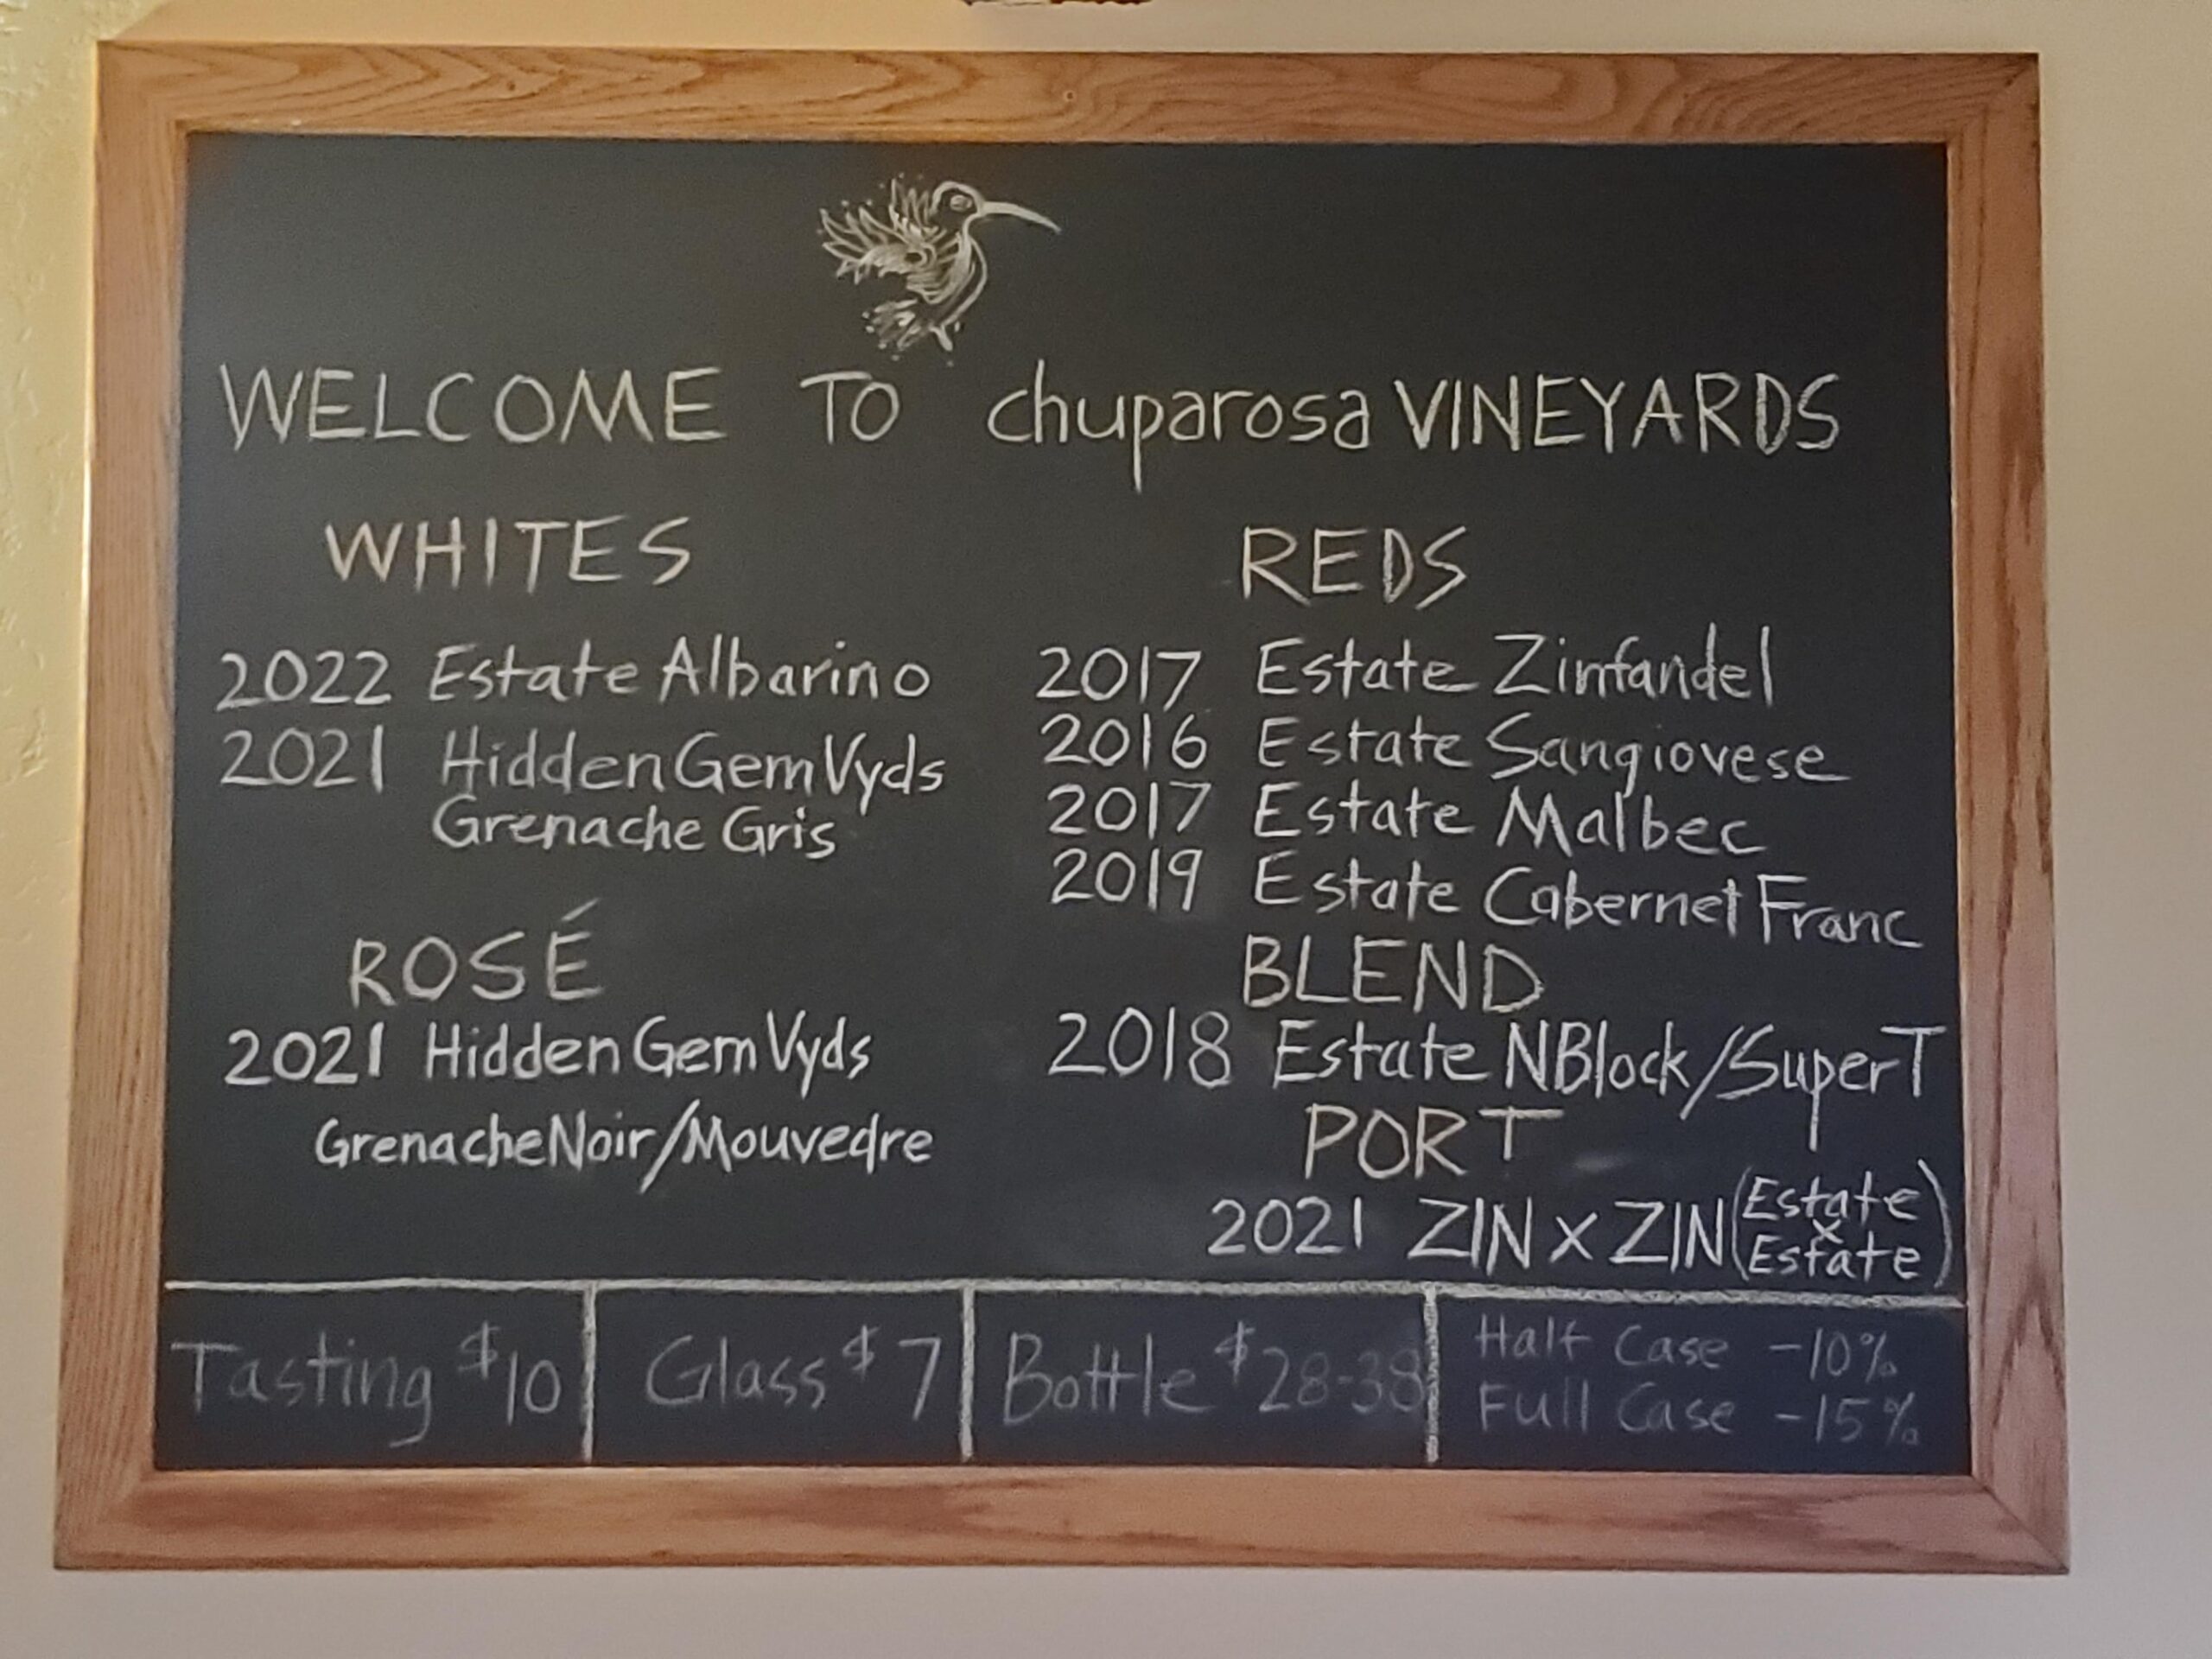 WELCOME TO chuparosa VINEYARDS
WHITES
2022 Estate Albarino
2021 Hidden Gem Vyds
Grenache Gris
ROSÉ
2021 Hidden Gem Vyds
Grenache Noir/Mouvedre
REDS
2017 Estate Zinfandel
2016 Estate Sangiovese
2017 Estate Malbec
2019 Estate Cabernet Franc
BLEND
2018 Estate NBlock/SuperT
PORT
2021 ZIN x ZIN (Estate
x
Estate)
Tasting $10
Glass $7
Bottle $28-38
Half Case -10%
Full Case -15%